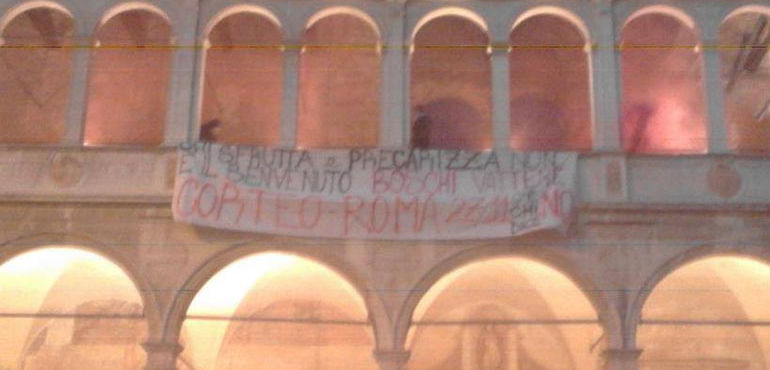 CHI SFRUTTA e PRECARIZZA NON
È IL BENVENUTO BOSCHI VATTENE
CORTEO-ROMA 26.11 NO